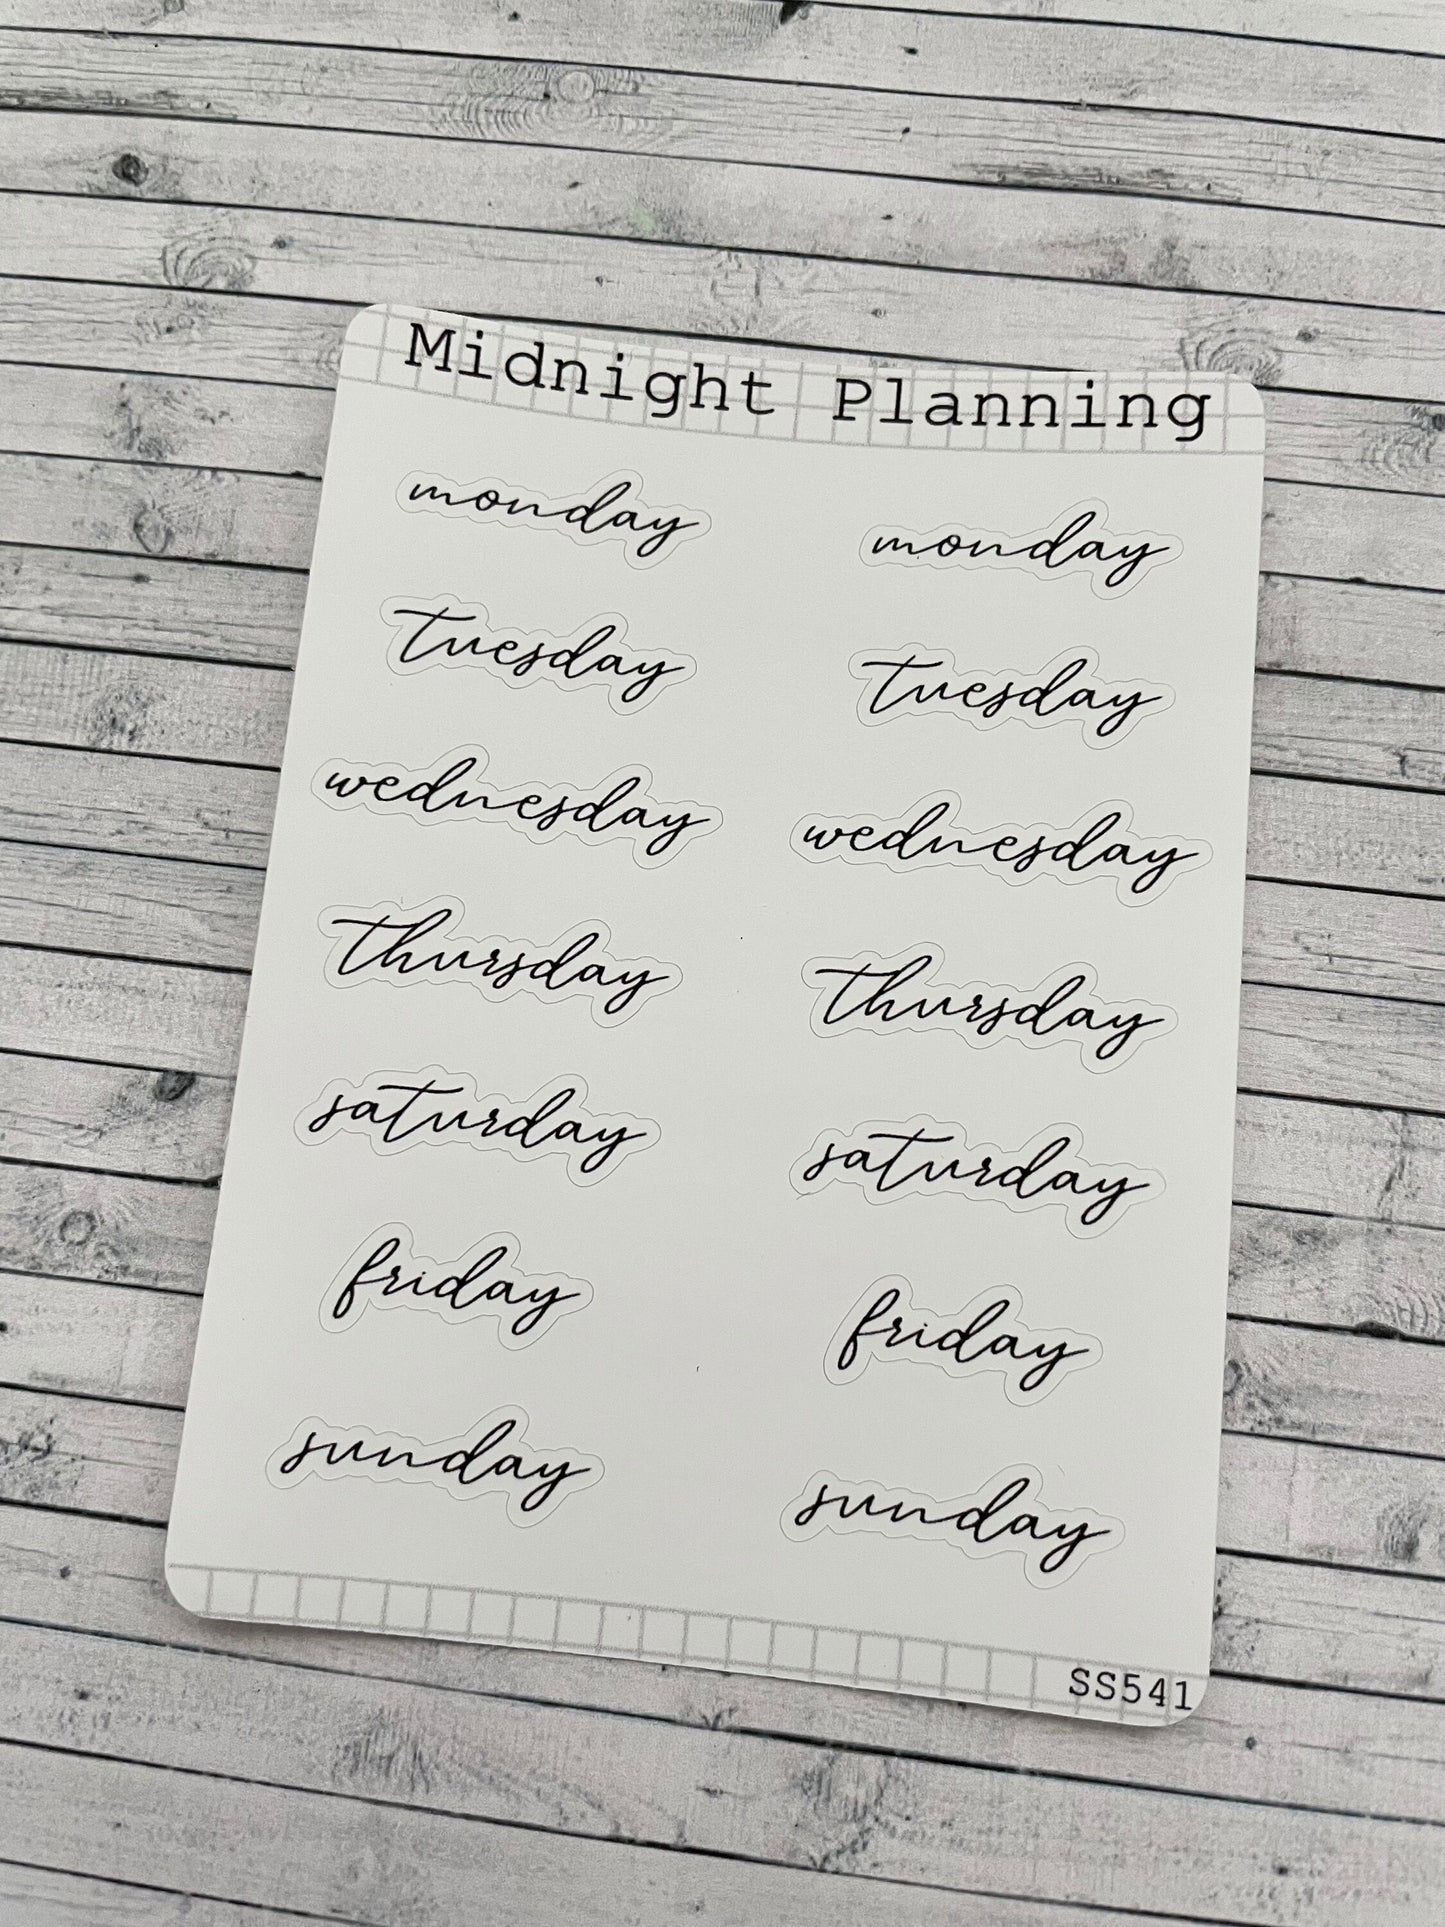 Midnight Planning
monday monday
tuesday tuesday
wednesday wednesday
thursday thursday
saturday saturday
friday friday
sunday sunday
SS541